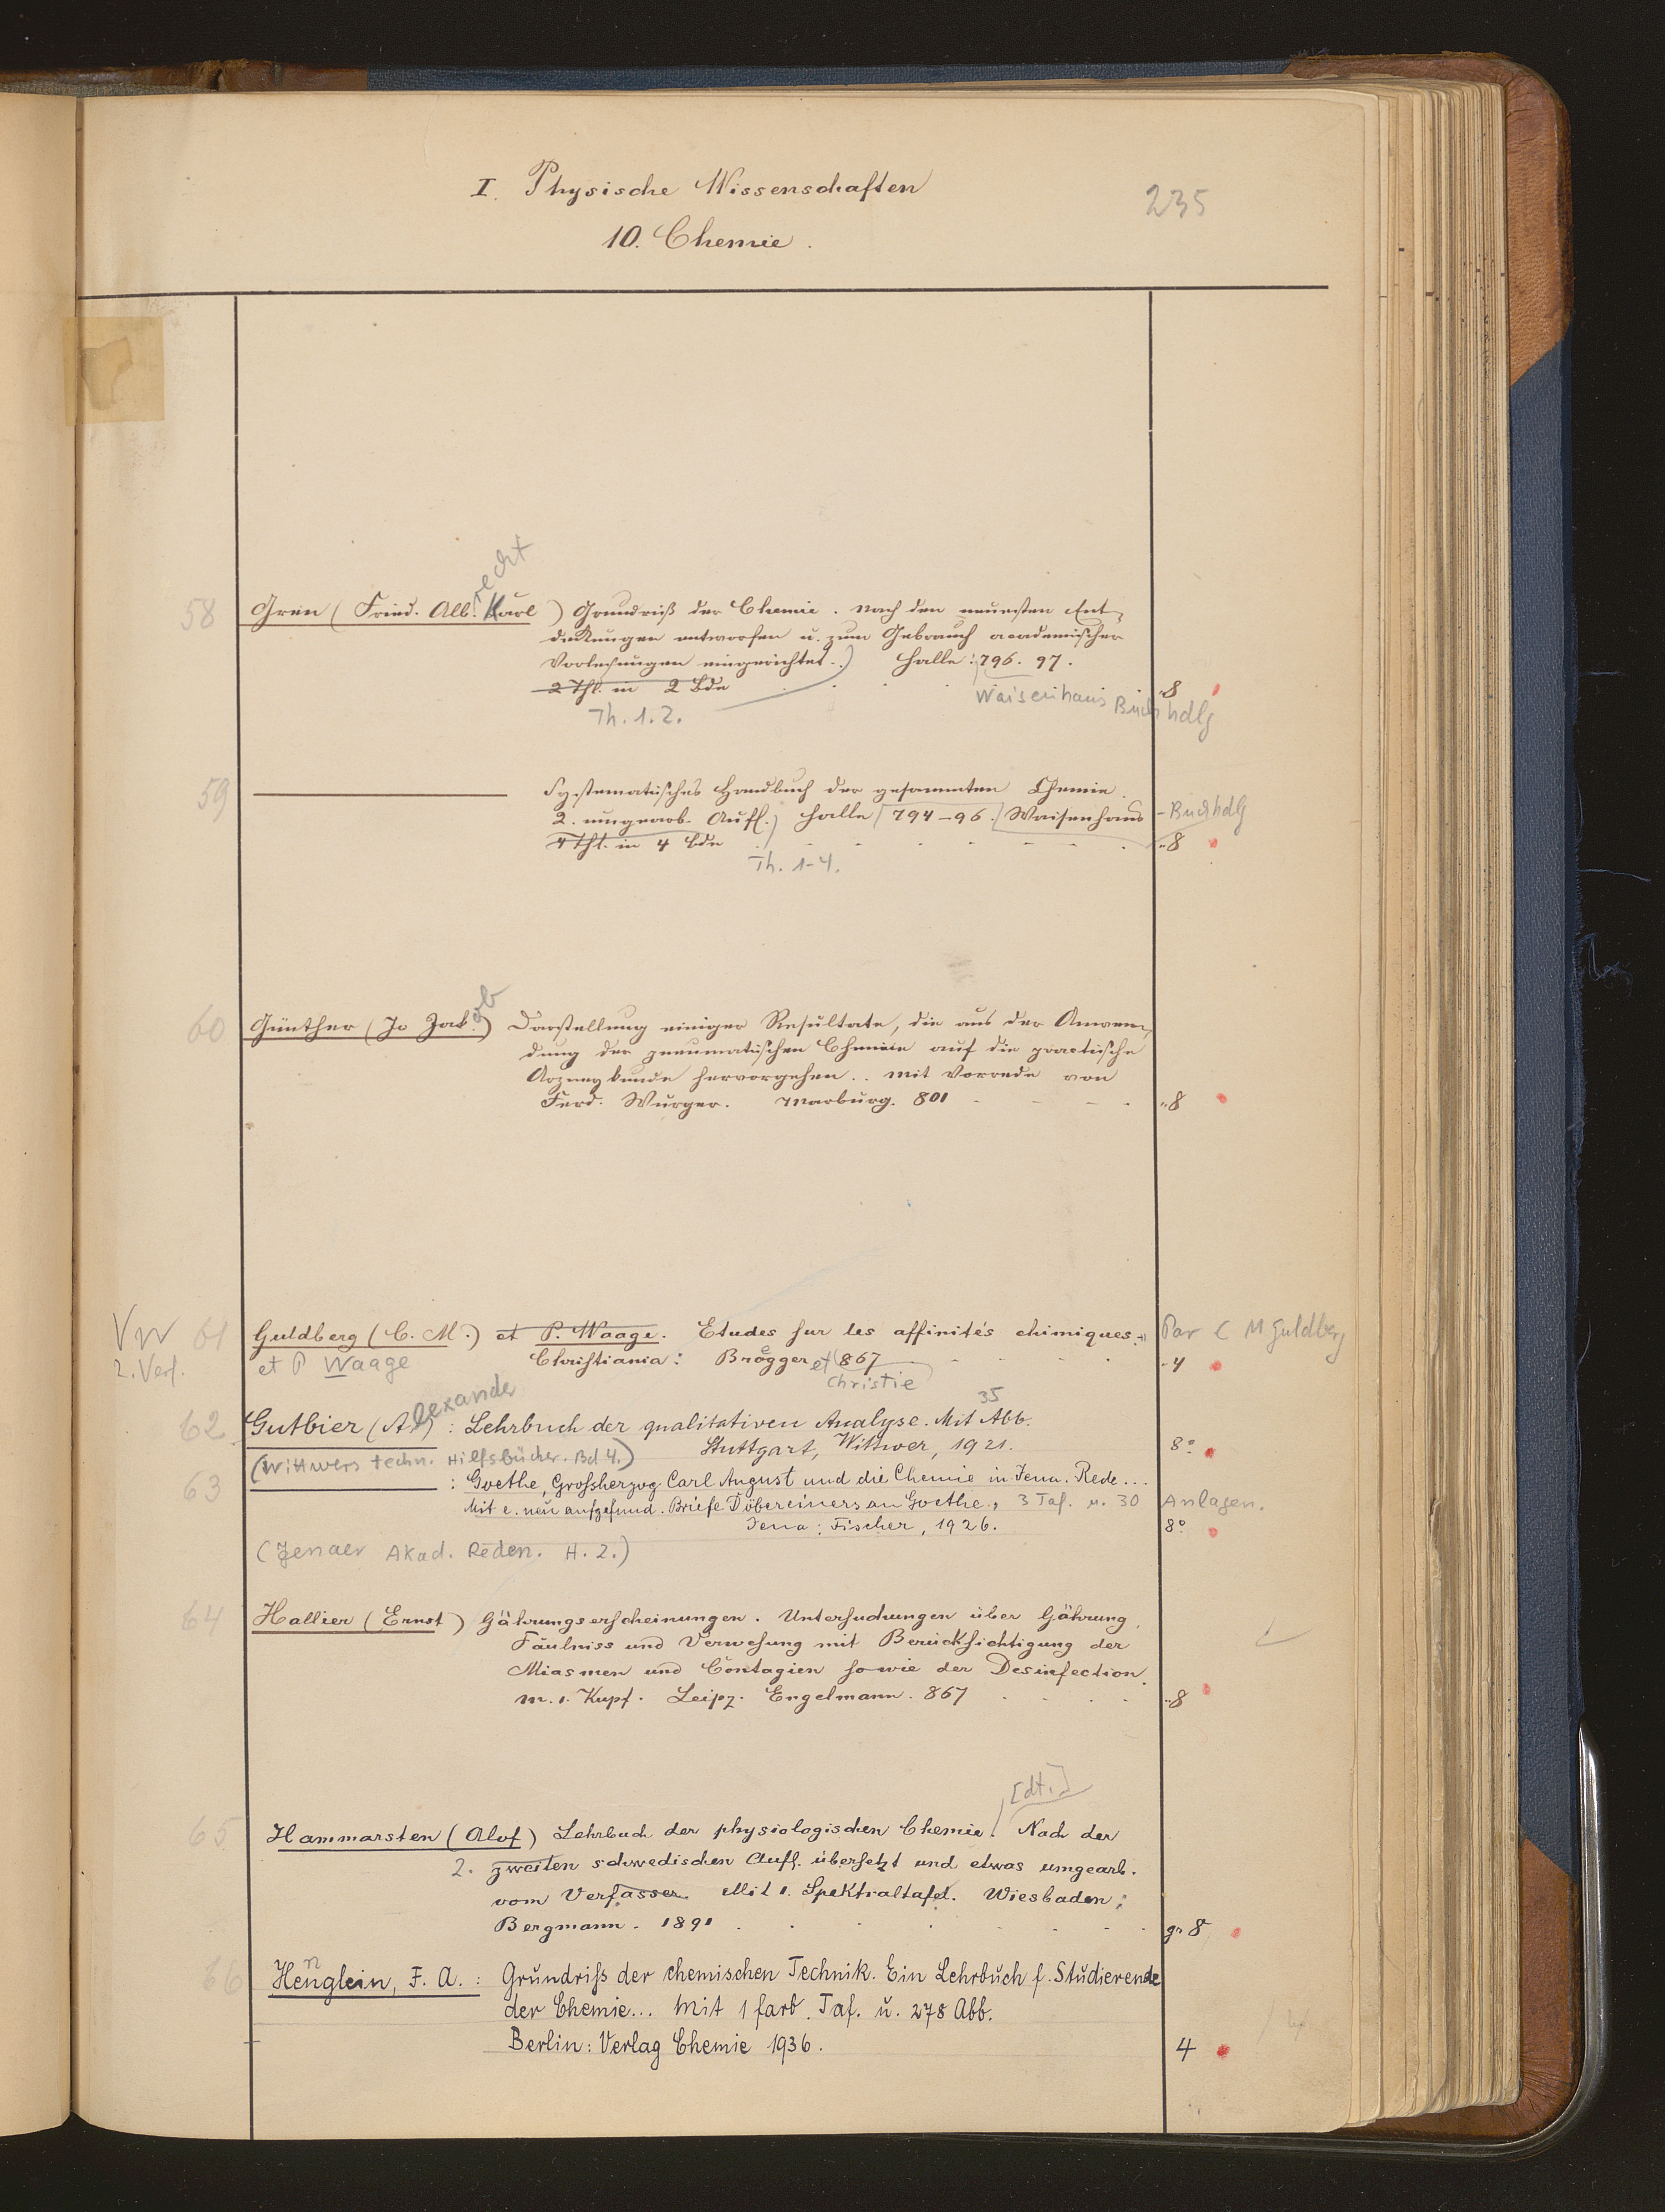 I. Physische Wissenschaften
235
10. Chemie.
recht
58 Gren (Fried. Alb. Karl) Grundriß der Chemie. nach den neuesten Ent-
deckungen entworfen u. zum Gebrauch academischer
Vorlesungen eingerichtet..) Halle: 796. 97.
2 Thl. in 2 Bde 8
Th. 1. 2. Waisenhaus Buchhdlg
59 Systematisches Handbuch der gesammten Chemie.
2. umgearb. Aufl.) Halle 794-96. Waisenhaus - Buchhdlg
4 Thl. in 4 Bde 8
Th. 1-4.
ob
60 Günther (Jo Jak.) Darstellung einiger Resultate, die aus der Anwen-
dung der pneumatischen Chemie auf die practische
Arzneykunde hervorgehen.. mit Vorrede von
Ferd. Wurzer. Marburg. 801 8
VW 61 Guldberg (C. M.) et P. Waage. Etudes sur les affinités chimiques. Par C M Guldberg
2. Verf. et P Waage Christiania: Brögger et 867 4
Christie
lexander 35
62 Gutbier (A.) : Lehrbuch der qualitativen Analyse. Mit Abb.
Stuttgart, Wittwer, 1921. 8°
(Wittwers techn. Hilfsbücher. Bd 4.)
63 : Goethe, Großherzog Carl August und die Chemie in Jena. Rede...
Mit e. neu aufgefund. Briefe Döbereiners an Goethe, 3 Taf. u. 30 Anlagen.
Jena: Fischer, 1926. 8°
(Jenaer Akad. Reden. H. 2.)
64 Hallier (Ernst) Gährungserscheinungen. Untersuchungen über Gährung,
Fäulniss und Verwesung mit Berücksichtigung der
Miasmen und Contagien sowie der Desinfection.
m. 1. Kupf. Leipz. Engelmann. 867 8
[dt.]
65 Hammarsten (Olof) Lehrbuch der physiologischen Chemie. Nach der
2. zweiten schwedischen Aufl. übersetzt und etwas umgearb.
vom Verfasser. Mit 1. Spektraltafel. Wiesbaden:
Bergmann. 1891 gr 8
n
66 Henglein, F. A. : Grundriß der chemischen Technik. Ein Lehrbuch f. Studierende
der Chemie... Mit 1 farb. Taf. u. 278 Abb.
Berlin: Verlag Chemie 1936. 4